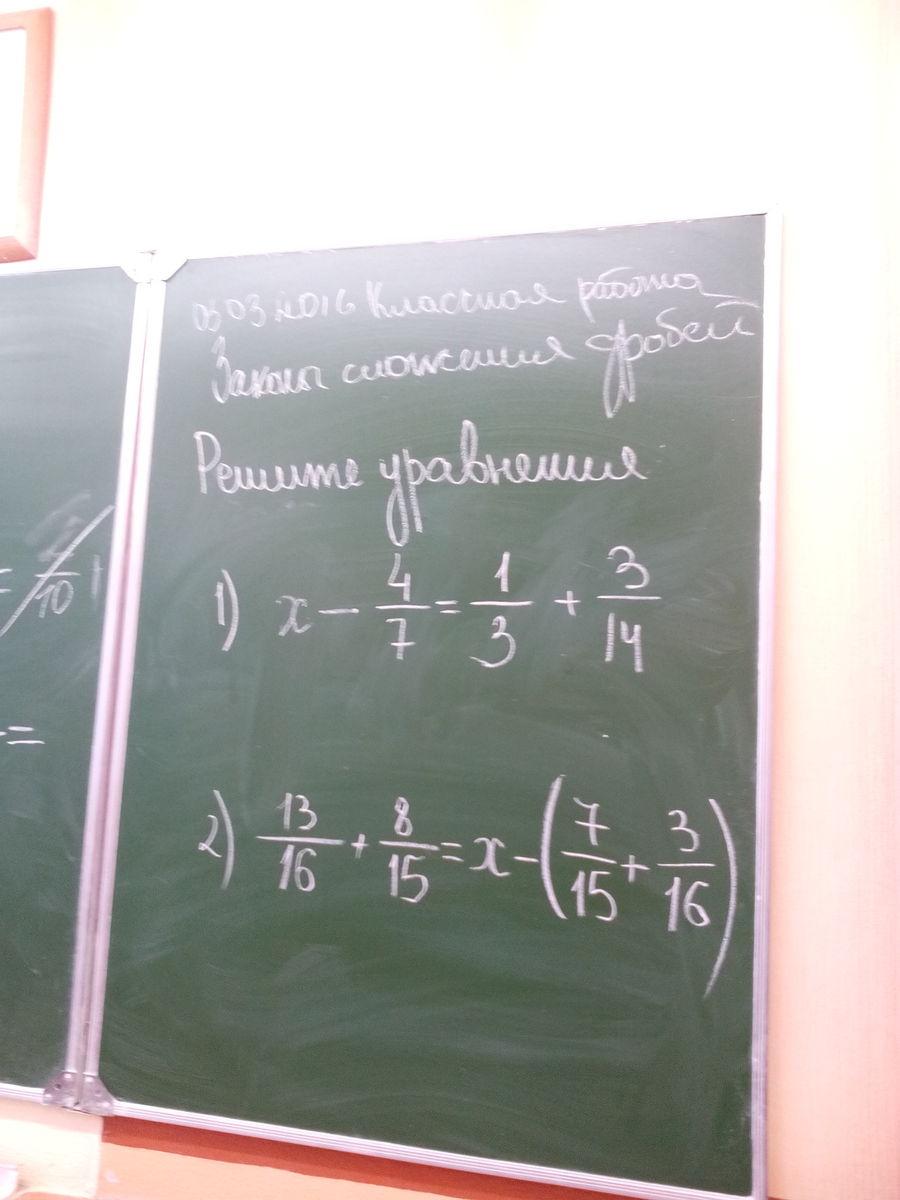 03 03 2016 Классная работа
Законы сложения дробей
Решите уравнения
1) x - 4/7 = 1/3 + 3/14
2) 13/16 + 8/15 = x - (7/15 + 3/16)
=